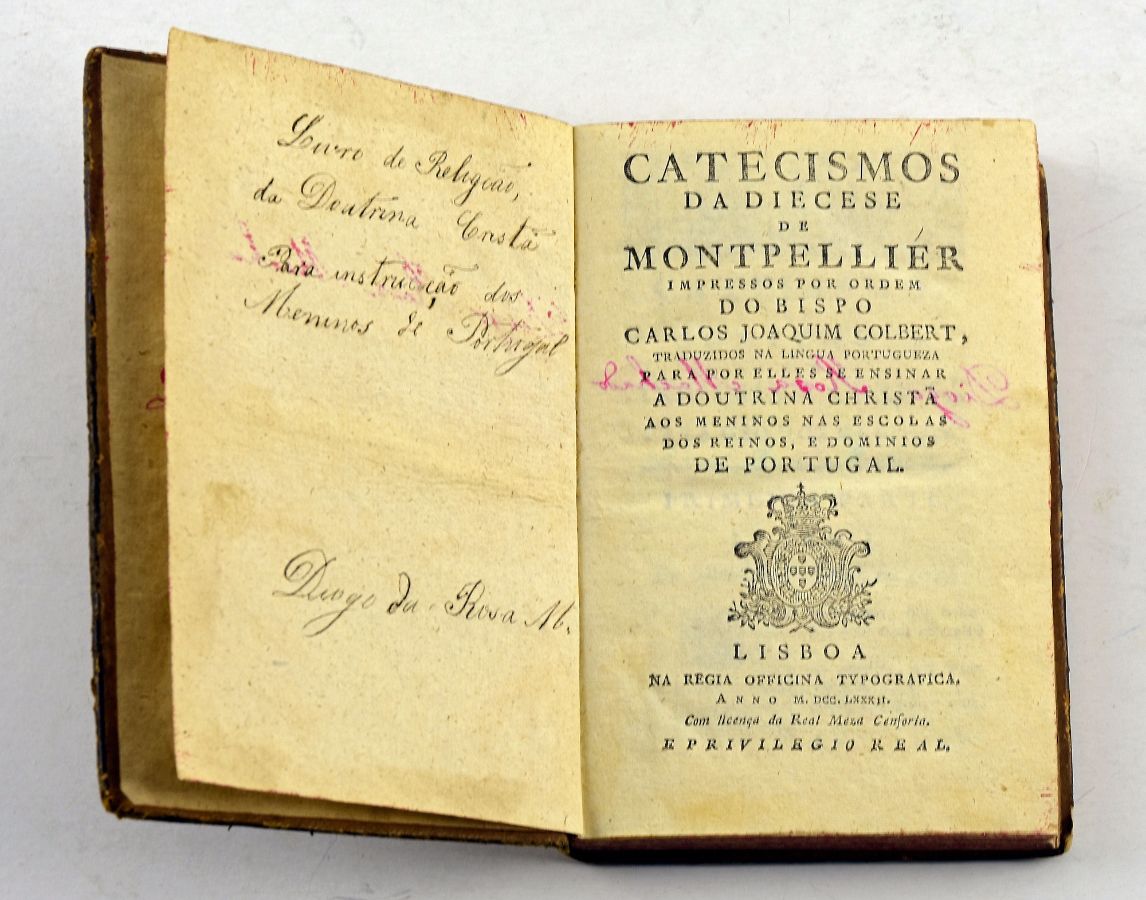 Livro de Religião,
da Doutrina Cristã
Para instrucção dos
Meninos de Portugal
Diogo da Rosa M.
CATECISMOS
DA DIECESE
DE
MONTPELLIÉR
IMPRESSOS POR ORDEM
DO BISPO
CARLOS JOAQUIM COLBERT,
TRADUZIDOS NA LINGUA PORTUGUEZA
PARA POR ELLES SE ENSINAR
A DOUTRINA CHRISTÃ
AOS MENINOS NAS ESCOLAS
DOS REINOS, E DOMINIOS
DE PORTUGAL.
LISBOA
NA REGIA OFFICINA TYPOGRAFICA.
ANNO M. DCC. LXXXII.
Com licença da Real Meza Cenſoria.
E PRIVILEGIO REAL.